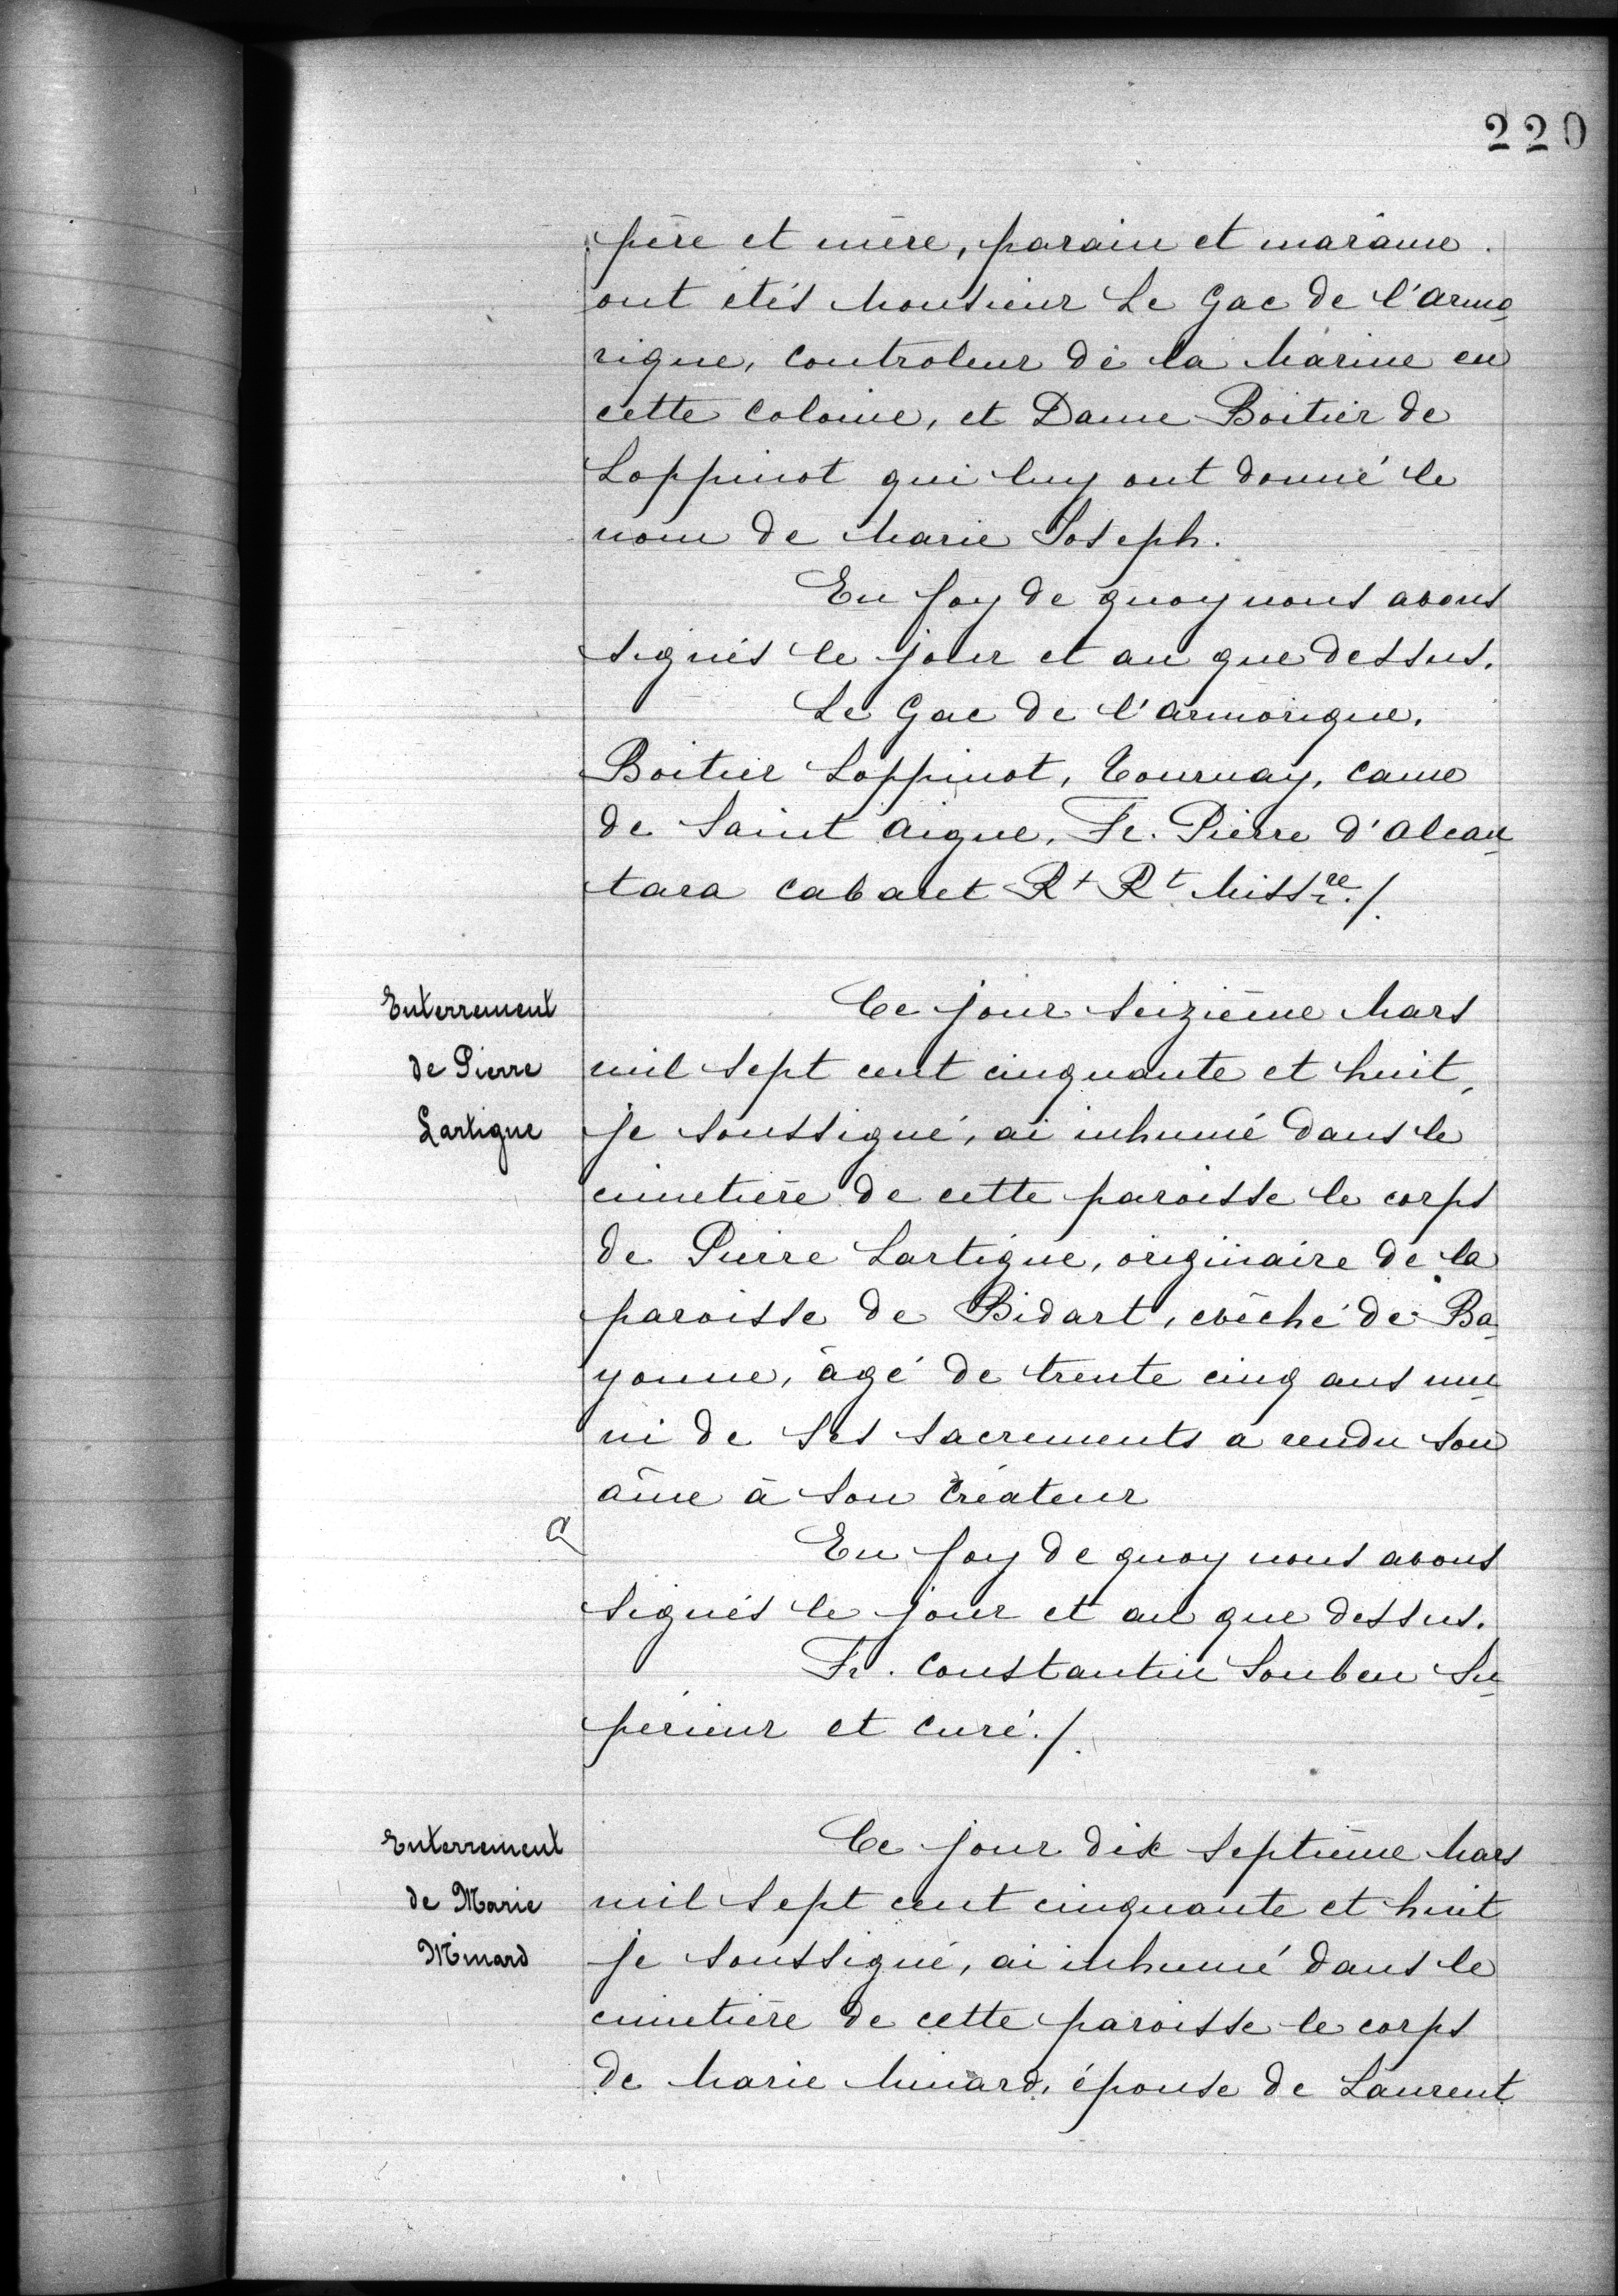 220
père et mère, parain et maraine
ont étés Monsieur Le Gac de l'armo
rique, Controleur de la Marine en
cette Colonie, et Dame Boitier de
Loppinot qui luy ont donné le
nom de Marie Joseph.
En foy de quoy nous avons
signés le jour et an que dessus.
Le Gac de l'armorique.
Boitier Loppinot, Tournay, Came
de Saint Aigne, Fr. Pierre d'Alcan
tara Cabaret Rt Rt Missre./.
Enterrement
de Pierre
Lartigue
Ce jour seizième Mars
mil sept cent cinquante et huit,
je soussigné, ai inhumé dans le
cimetière de cette paroisse le corps
de Pierre Lartigue, originaire de la
paroisse de Bidart, evêché de Ba
yonne, âgé de trente cinq ans mu
ni de ses sacrements a rendu son
âme à son Créateur
En foy de quoy nous avons
signés le jour et an que dessus.
Fr. Constantin Souben Su
périeur et Curé./.
Enterrement
de Marie
Minard
Ce jour dix septième Mars
mil sept cent cinquante et huit
je soussigné, ai inhumé dans le
cimetière de cette paroisse le corps
de Marie Minard, épouse de Laurent